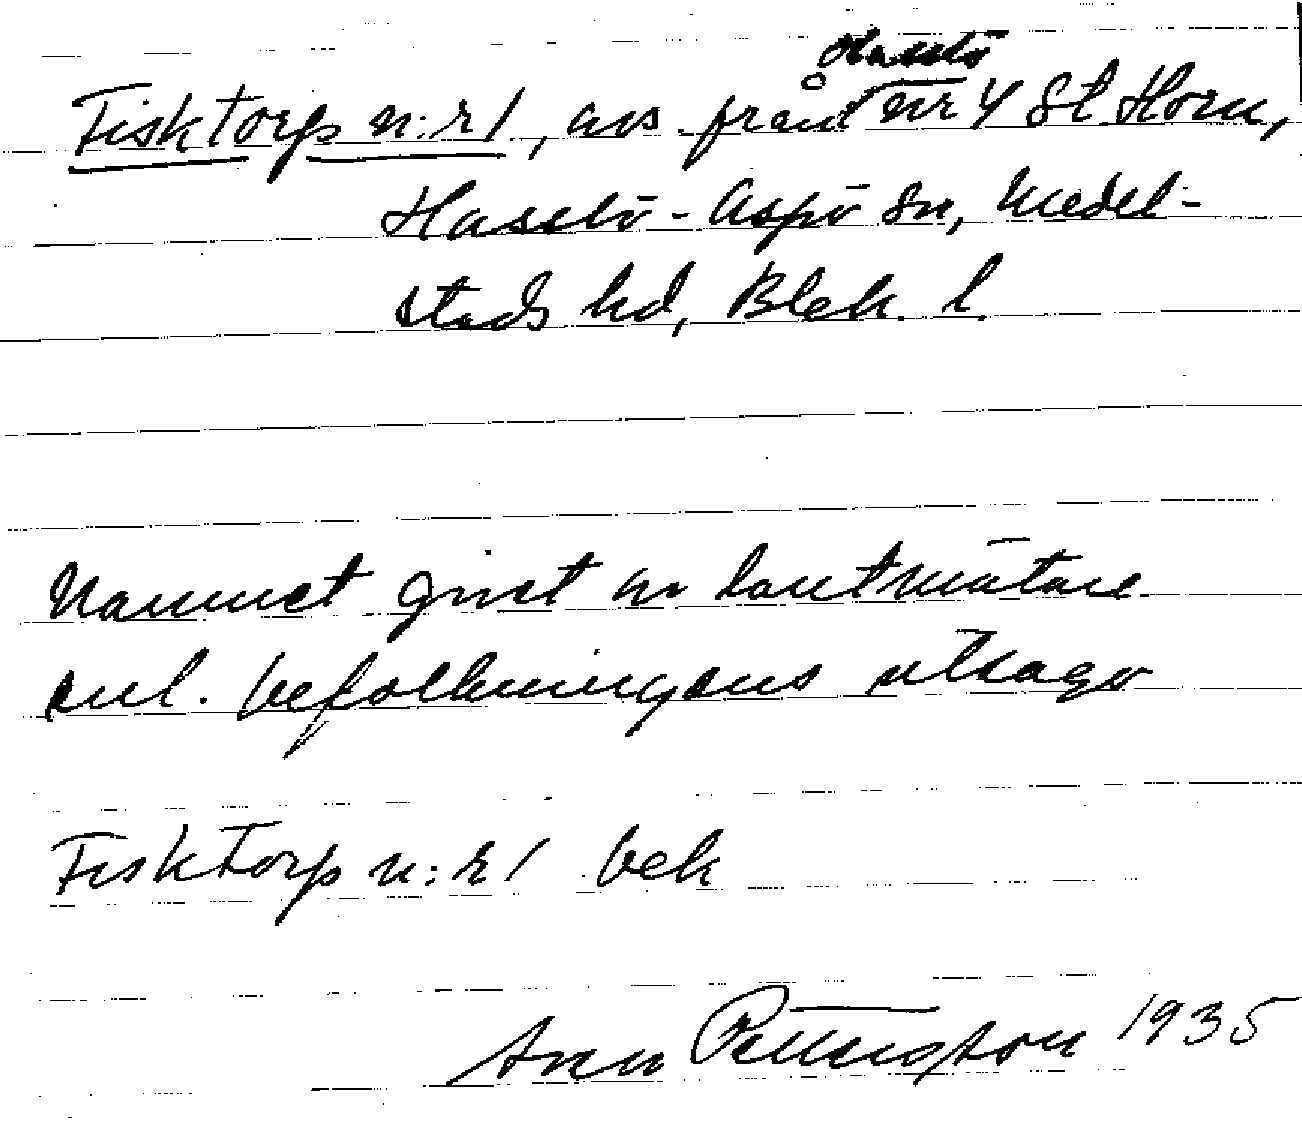 Hasslö
Fisktorp n:r 1, avs. från nr 4 St. Horn,
Hasslö-Aspö sn, Medel-
stads hd, Blek. l.
Namnet givet av lantmätare
enl. befolkningens utsago
Fisktorp n:r 1 bek
Pettersson 1935